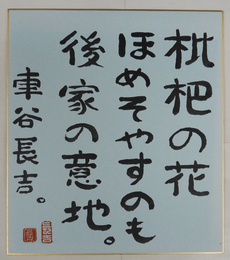 枇杷の花
ほめそやすのも
後家の意地。
車谷長吉。